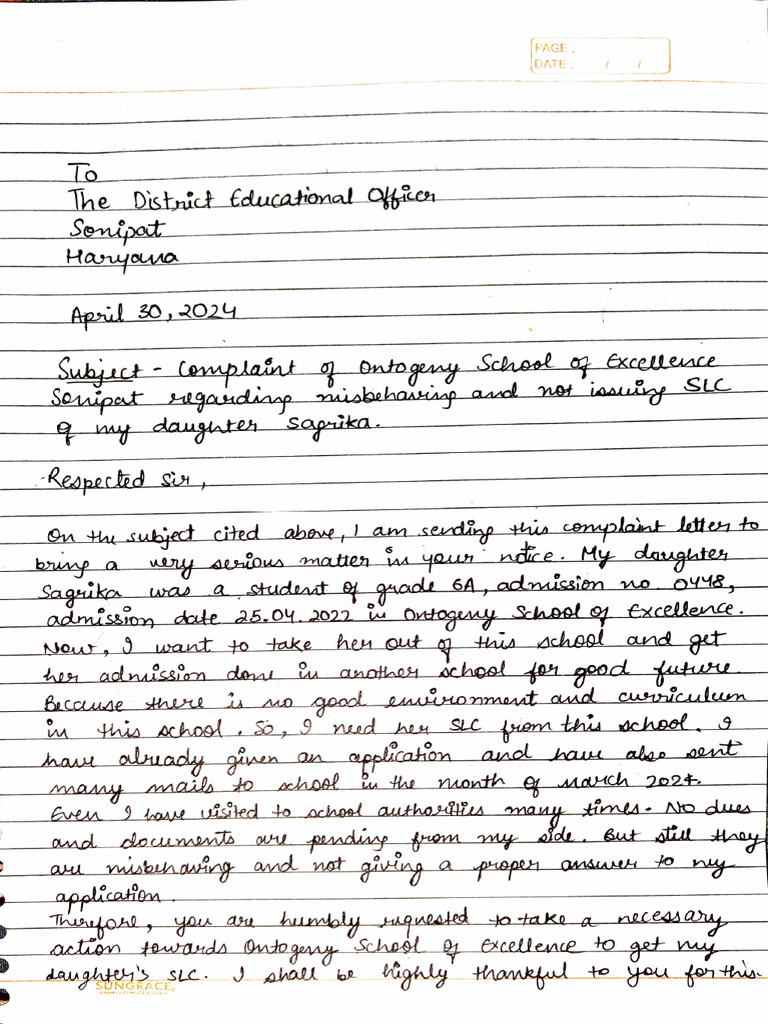 PAGE :
DATE : / /
To
The District Educational Officer
Sonipat
Haryana
April 30, 2024
Subject - Complaint of Ontogeny School of Excellence
Sonipat regarding misbehaving and not issuing SLC
of my daughter Sagrika.
Respected Sir,
On the subject cited above, I am sending this complaint letter to
bring a very serious matter in your notice. My daughter
Sagrika was a student of grade 6A, admission no. 0448,
admission date 25.04.2022 in Ontogeny School of Excellence.
Now, I want to take her out of this school and get
her admission done in another school for good future.
Because there is no good environment and curriculum
in this school. So, I need her SLC from this school. I
have already given an application and have also sent
many mails to school in the month of March 2024.
Even I have visited to school authorities many times. No dues
and documents are pending from my side. But still they
are misbehaving and not giving a proper answer to my
application.
Therefore, you are humbly requested to take a necessary
action towards Ontogeny School of Excellence to get my
daughter's SLC. I shall be highly thankful to you for this.
SUNGRACE